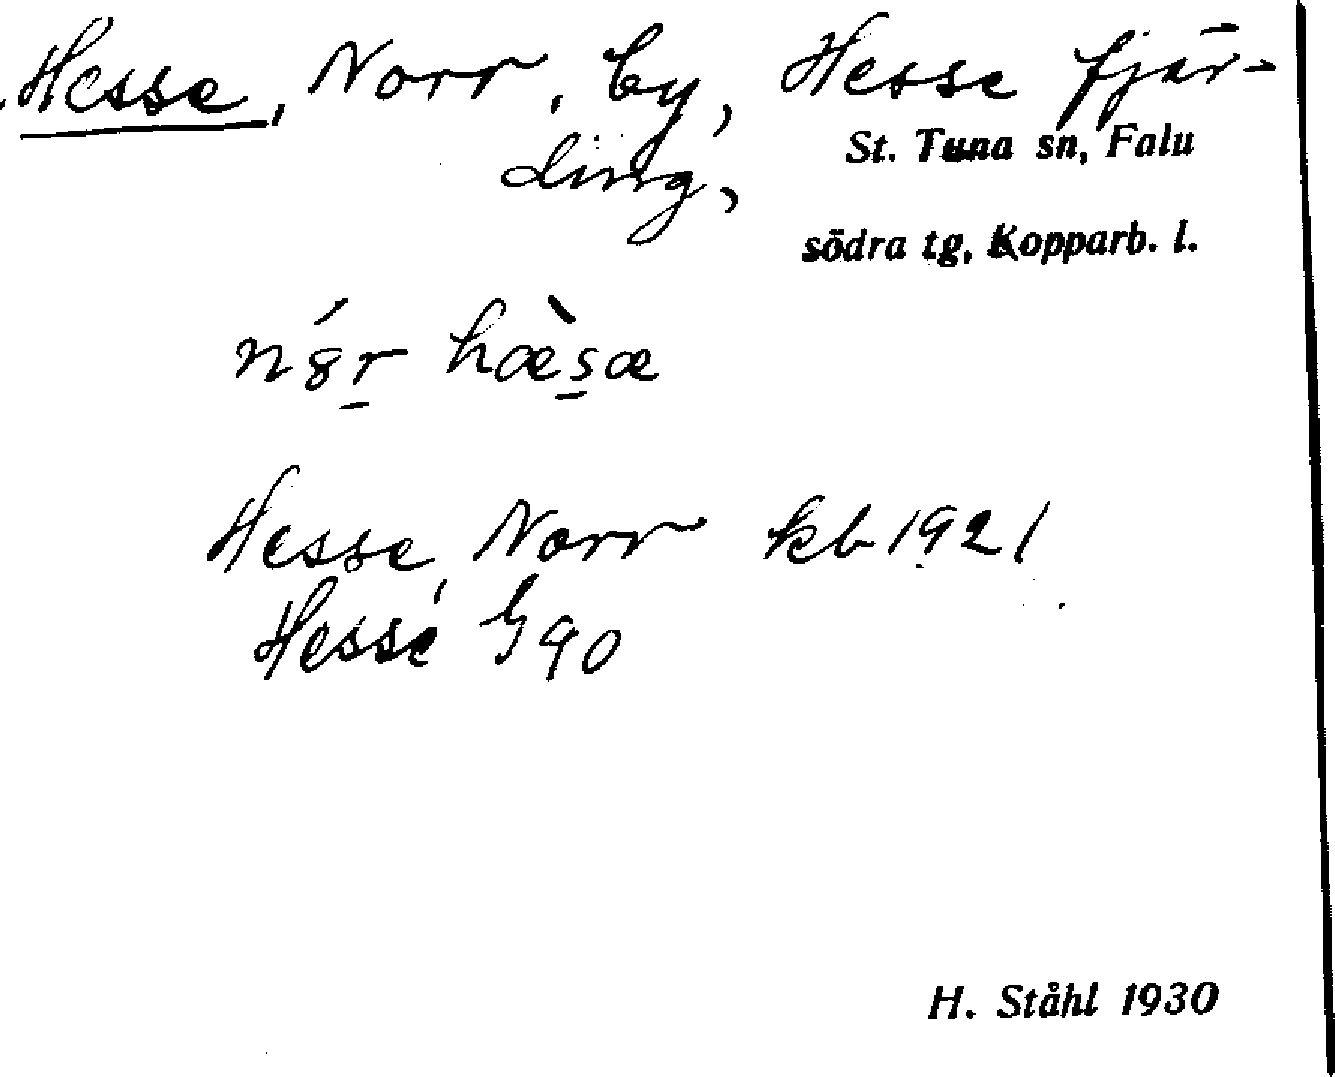 Hesse, Norr, by, Hesse fjär-
ding,
St. Tuna sn, Falu
södra tg, Kopparb. l.
hæ̀s̠æ
Hesse, Norr kb 1921
Hesse G 90
H. Ståhl 1930